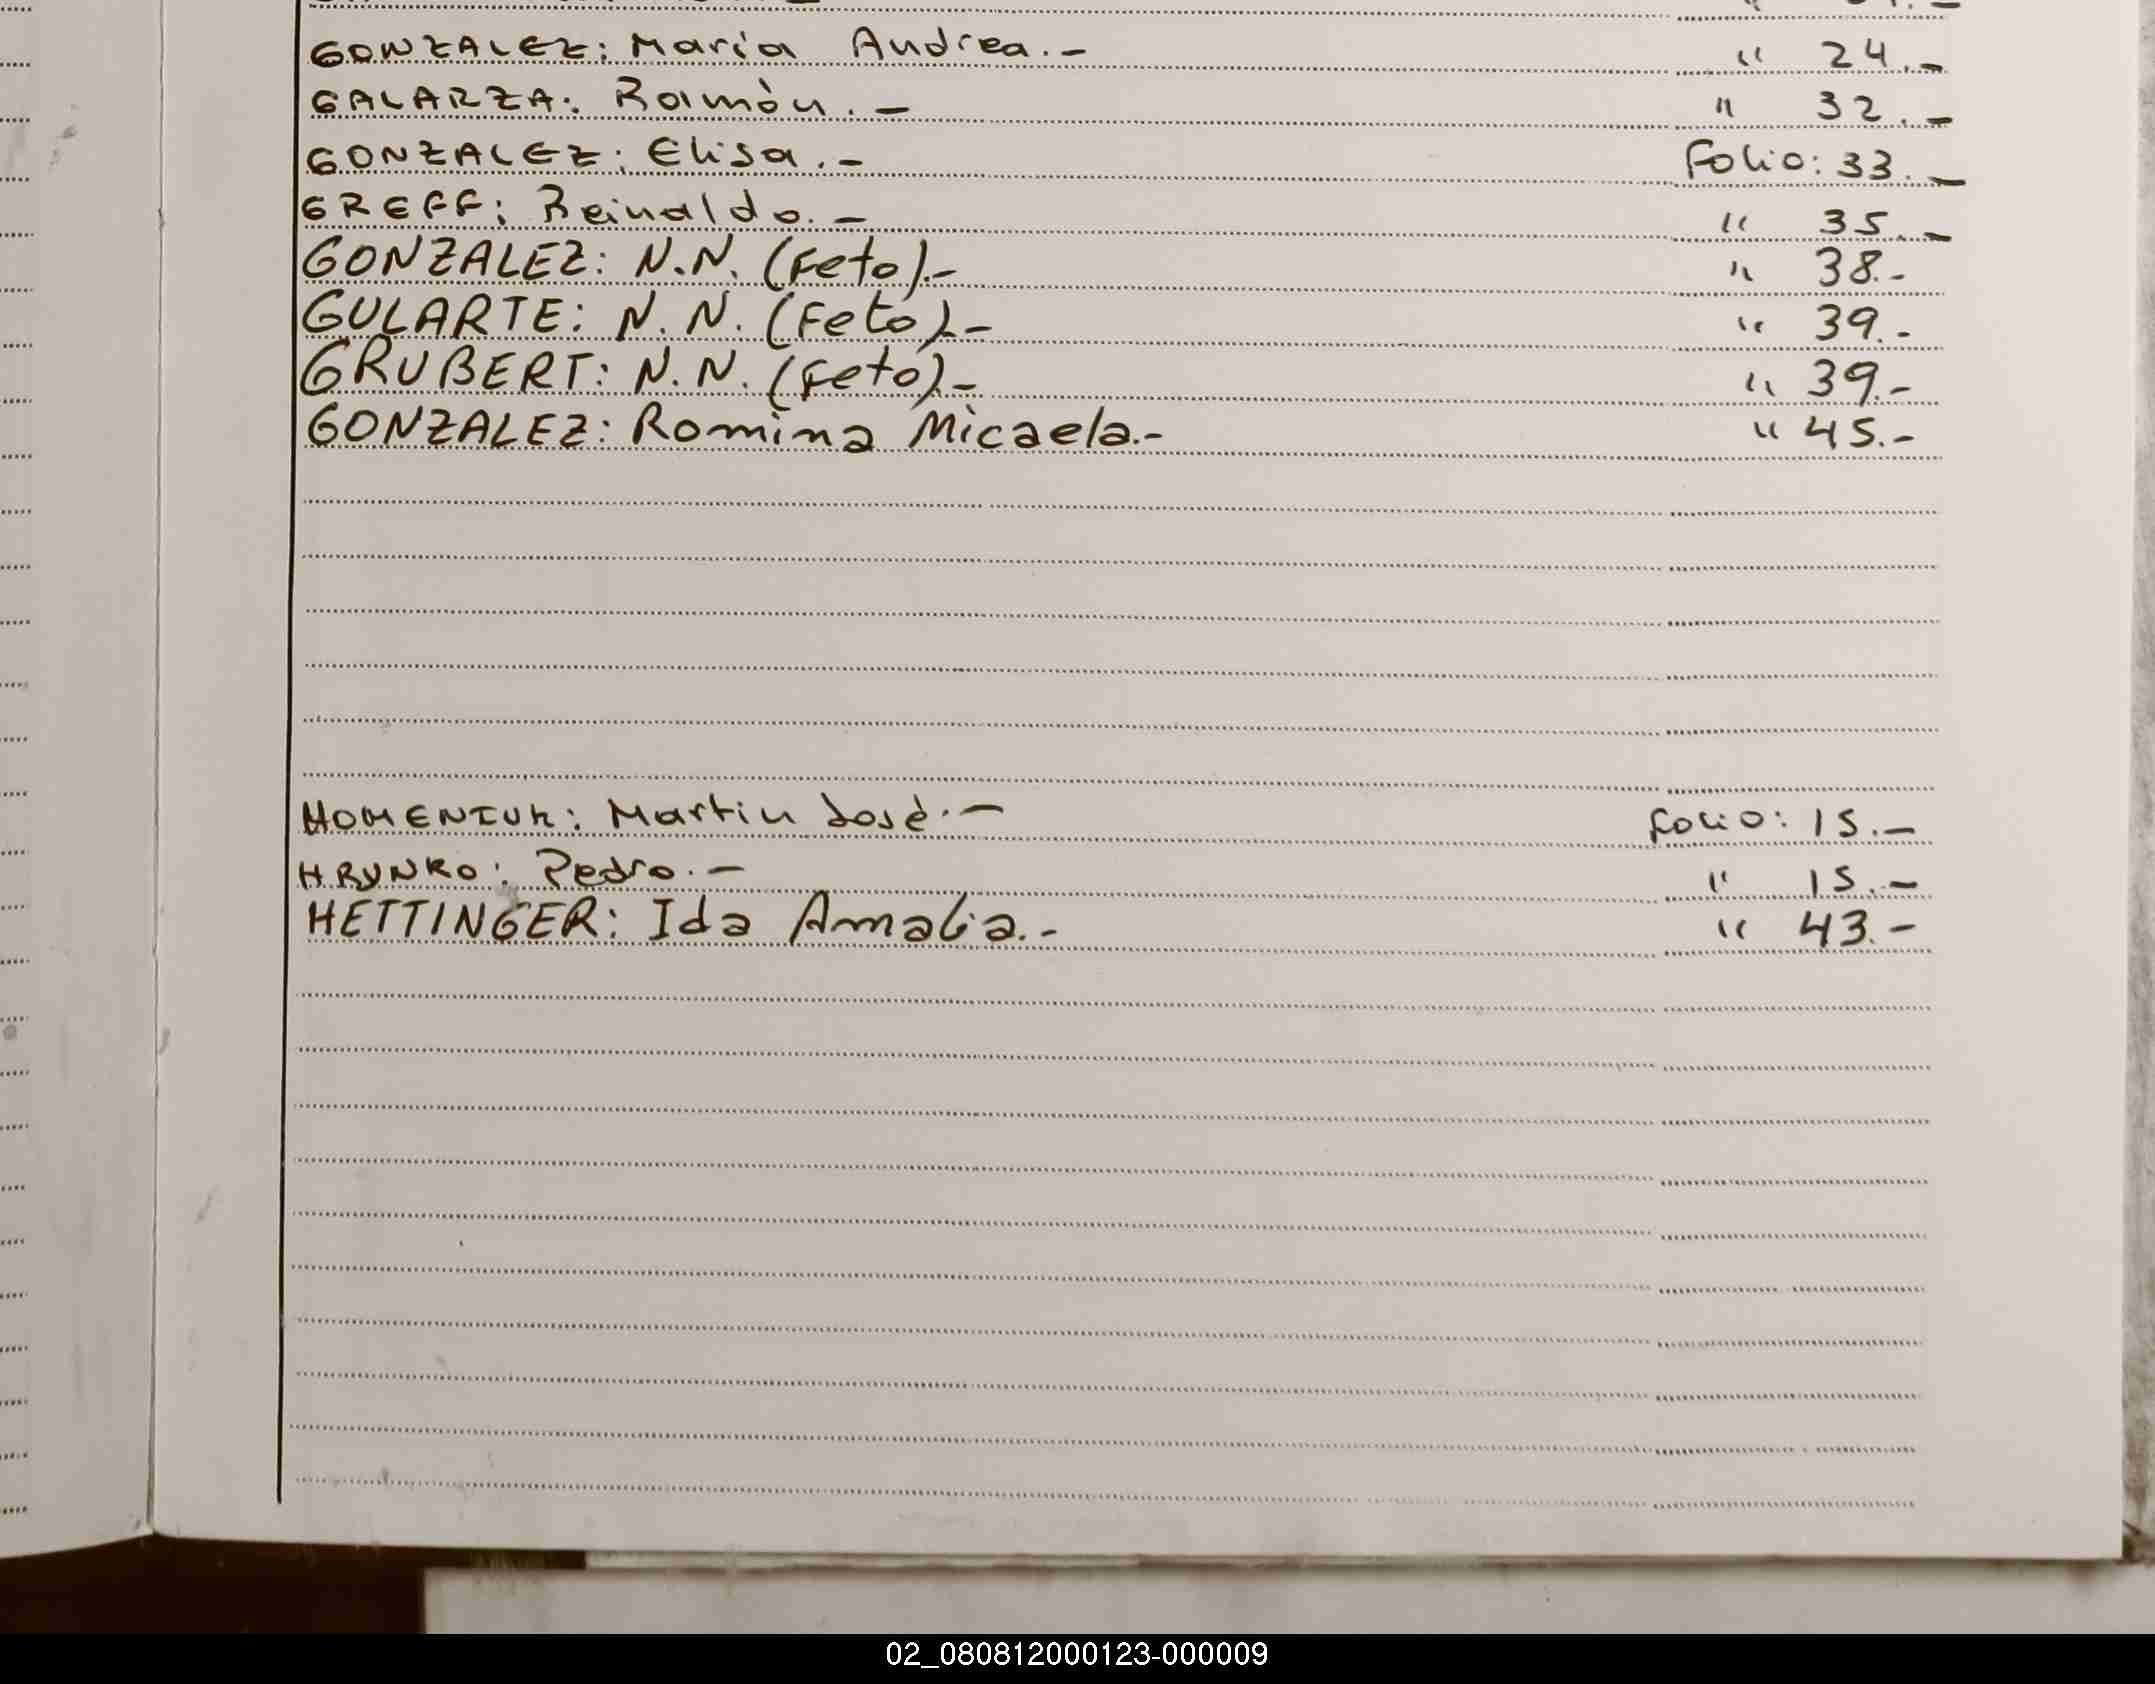 GONZALEZ: María Andrea.- " 24.-
GALARZA: Ramòn.- " 32.-
GONZALEZ: Elisa.- Folio: 33.-
GREFF: Reinaldo.- " 35.-
GONZALEZ: N.N. (Feto).- " 38.-
GULARTE: N.N. (Feto).- " 39.-
GRUBERT: N.N. (Feto).- " 39.-
GONZALEZ: Romina Micaela.- " 45.-
HOMENIUK: Martin Josè.- Folio: 15.-
HRYNKO: Pedro.- " 15.-
HETTINGER: Ida Amalia.- " 43.-
02_080812000123-000009